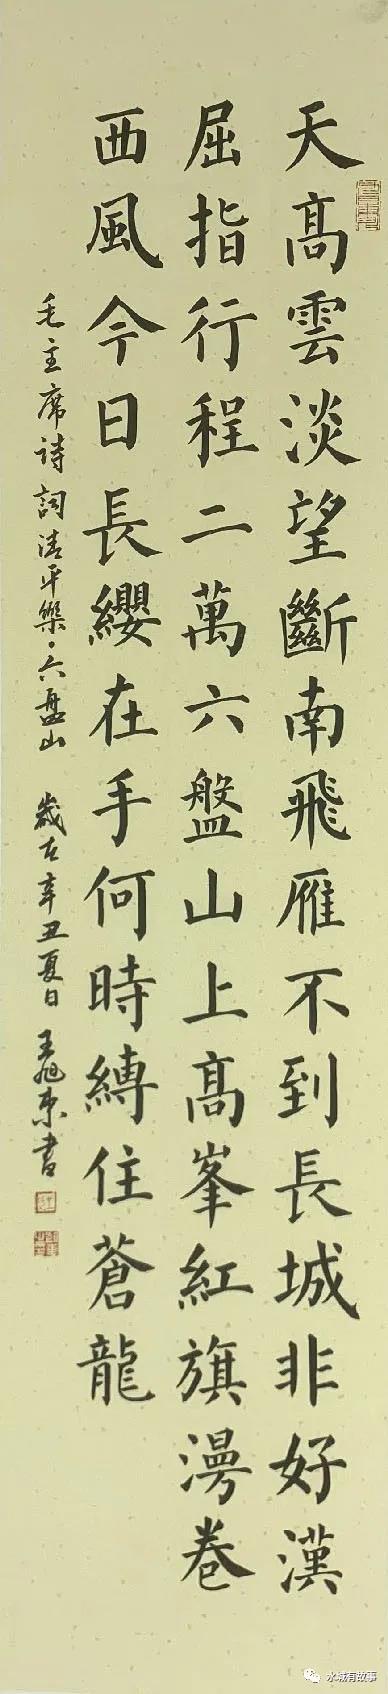 天髙雲淡望斷南飛雁不到長城非好漢
屈指行程二萬六盤山上髙峯紅旗漫卷
西風今日長纓在手何時縛住蒼龍
毛主席诗詞清平樂·六盤山 歲在辛丑夏日 王旭东書
水城有故事